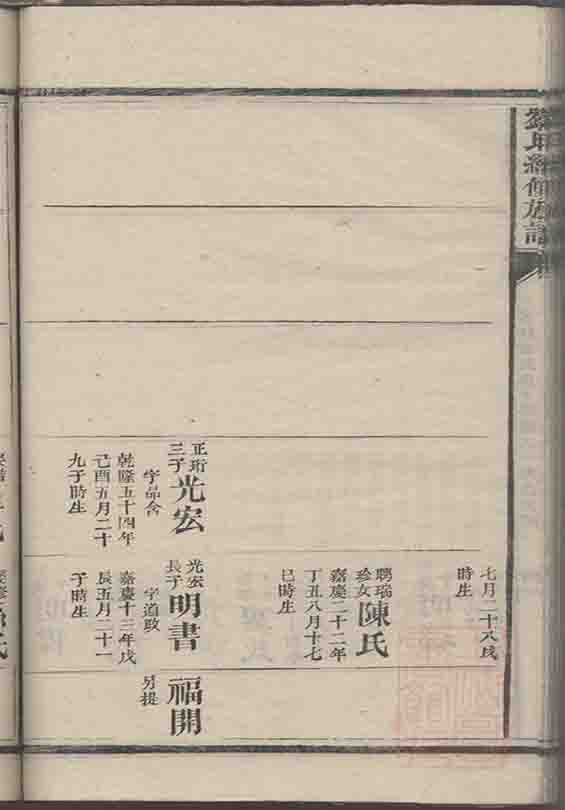 族譜
七月二十八戌
時生
聘瑞
珍女陳氏
嘉慶二十二年
丁丑八月十七
巳時生
正珩
三子光宏
乾隆五十四年
己酉五月二十
九子時生
光宏
長子明書
字道政
嘉慶十三年戊
辰五月二十一
子時生
福開
另提